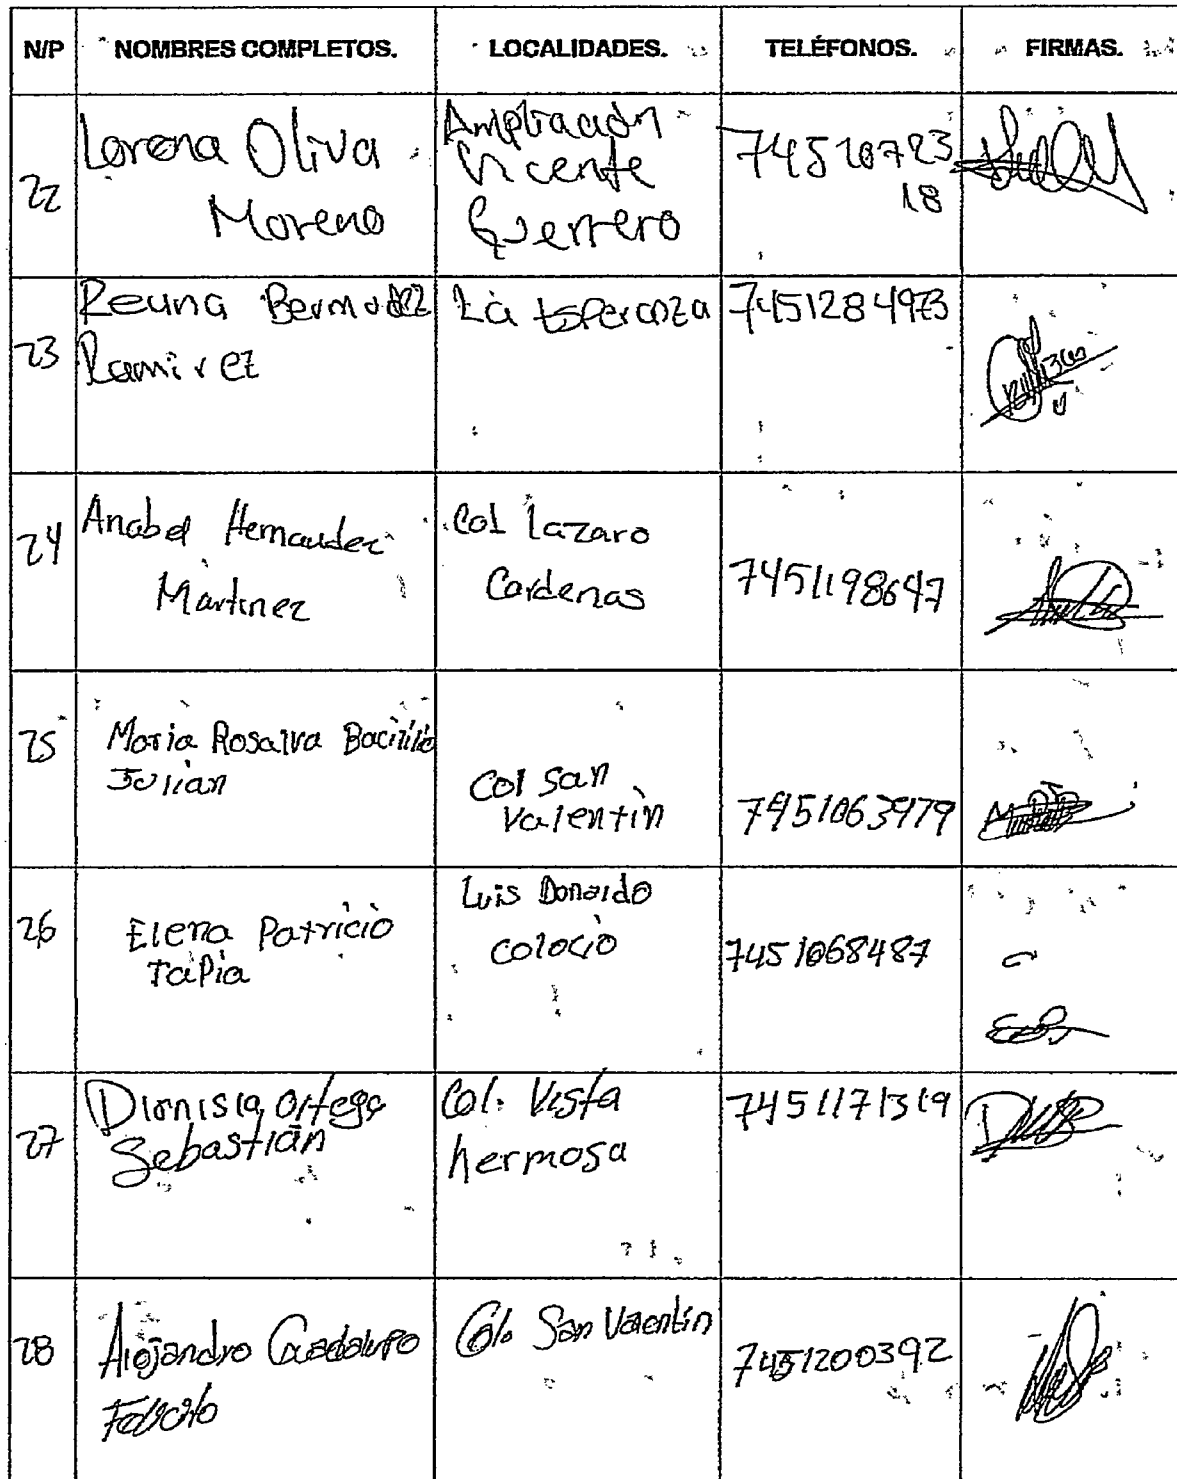 N/P NOMBRES COMPLETOS. LOCALIDADES. TELÉFONOS. FIRMAS.
22 Lorena Oliva Moreno Ampliación Vicente Guerrero 7451072318
23 Reyna Bermudez Ramirez La Esperanza 7451284973
24 Anabel Hernandez Martinez Col Lazaro Cardenas 7451198647
25 Maria Rosalva Bacililio Julian Col San Valentin 7451063979
26 Elena Patricio Tapia Luis Donaldo Colocio 7451068487
27 Dionisia Ortega Sebastián Col. Vista hermosa 7451171319
28 Alejandro Guadalupe Col. San Valentin 7451200392